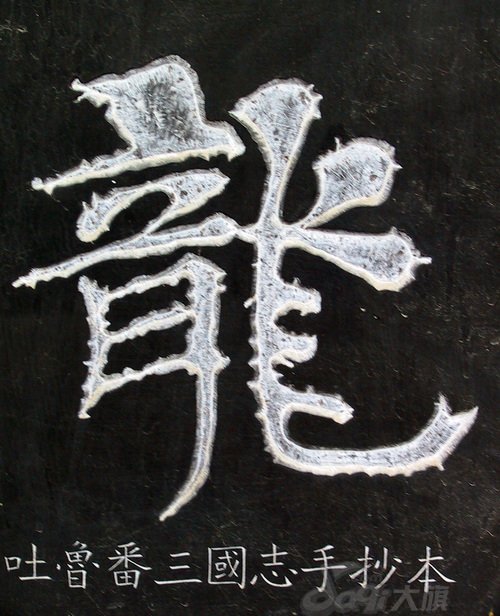 龍
吐魯番三國志手抄本
大旗